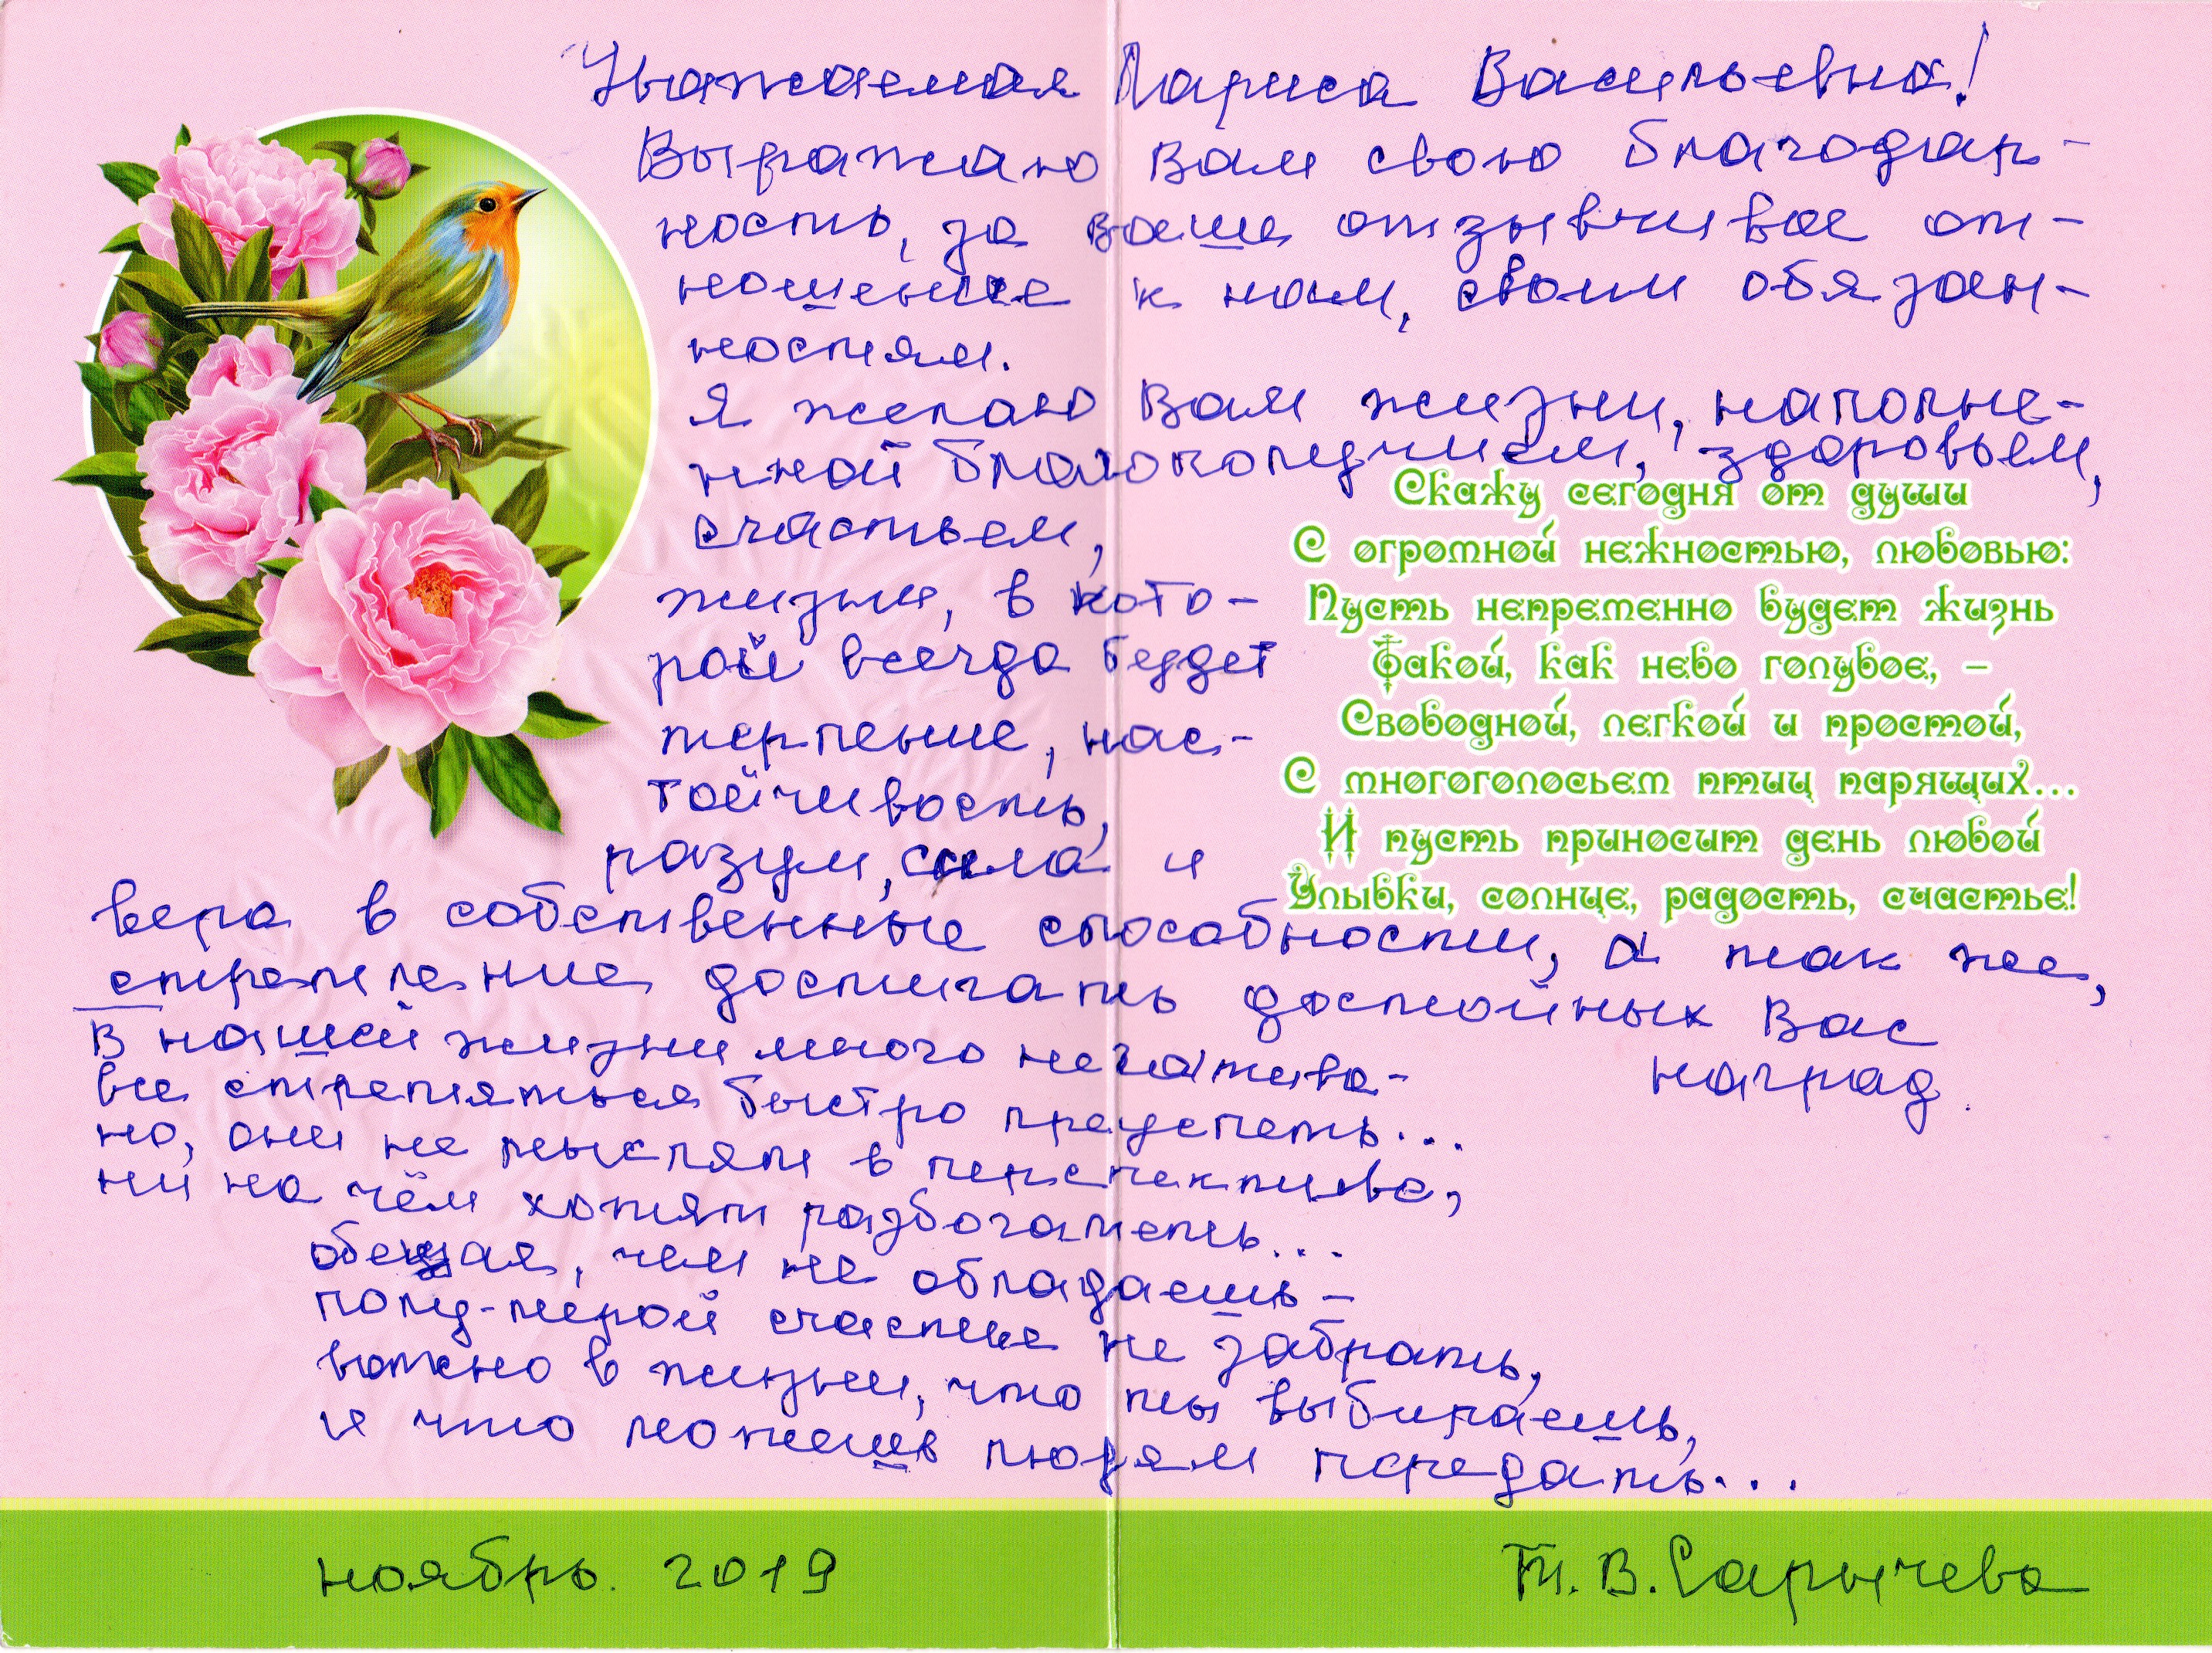 Уважаемая Лариса Васильевна!
Выражаю Вам свою благодар-
ность, за ваше отзывчивое от-
ношение к нам, своим обязан-
ностям.
Я желаю Вам жизни, наполне-
нной благополучием, здоровьем,
счастьем,
жизни, в кото-
рой всегда будет
терпение, нас-
тойчивость,
разум, сила и
вера в собственные способности, а так же,
стремление достигать достойных Вас
наград.
В нашей жизни много негатива-
все стремяться быстро преуспеть...
но, они не мыслят в перспективе,
ни на чём хотят разбогатеть...
обещая, чем не обладаешь-
полу-мерой счастье не забрать,
важно в жизни, что ты выбираешь,
и что можешь людям передать...
Скажу сегодня от души
С огромной нежностью, любовью:
Пусть непременно будет жизнь
Такой, как небо голубое, –
Свободной, легкой и простой,
С многоголосьем птиц парящих...
И пусть приносит день любой
Улыбки, солнце, радость, счастье!
ноябрь. 2019
Т. В. Сарычева